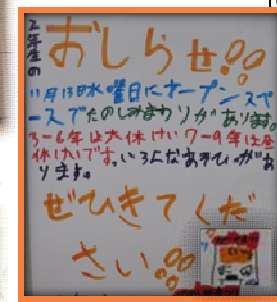 2年生の
おしらせ!!
11月13日水曜日にオープンスペ
ースでたのしみまつりがあります。
3~6年は大休けい7~9年は昼
休けいです。いろんなあそびがあ
ります。
ぜひきてくだ
さい!!